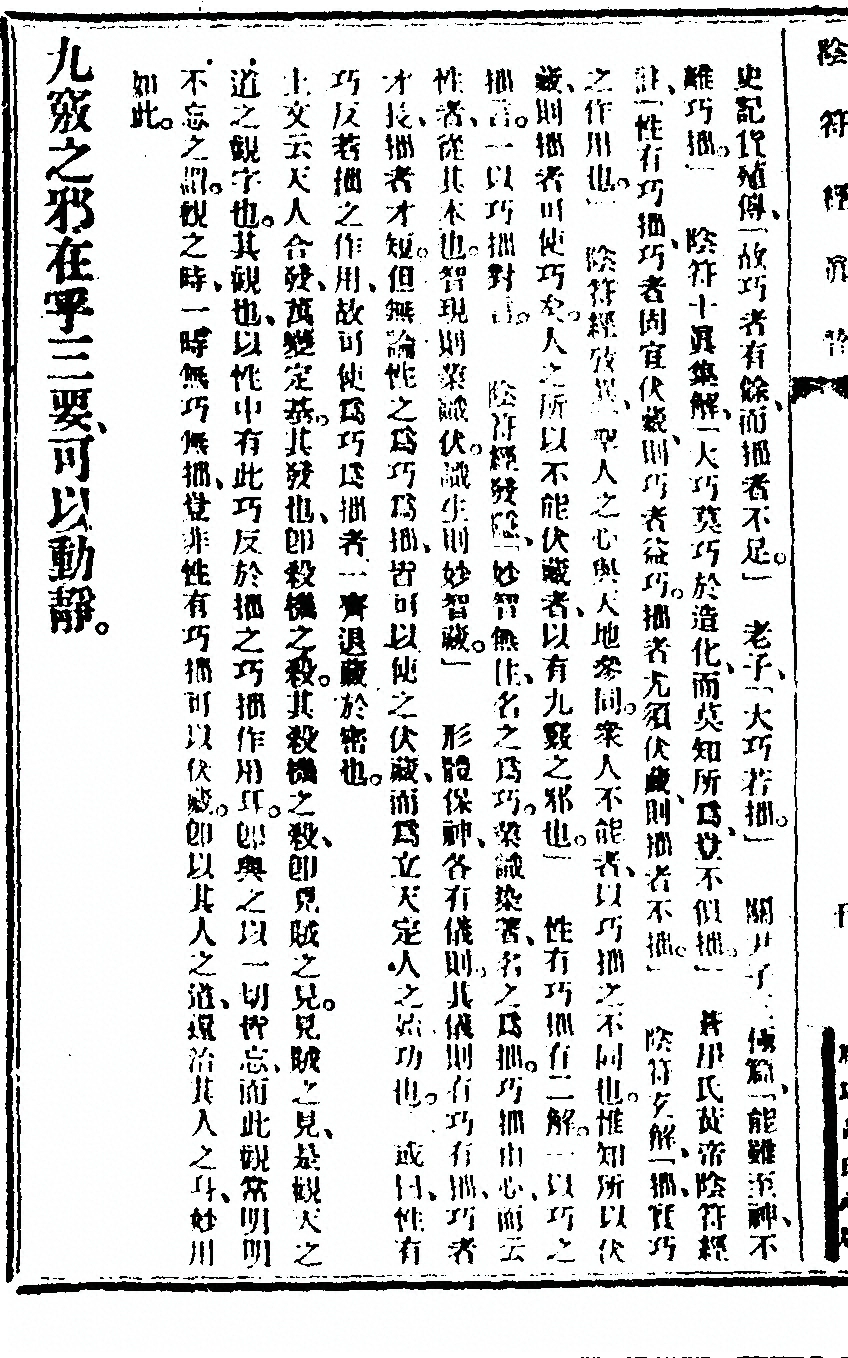 陰符經真
史記貨殖傳、「故巧者有餘、而拙者不足。」　老子「大巧若拙。」　關尹子三極篇、「能難至神、不
離巧拙。」　陰符十眞集解、「大巧莫巧於造化、而莫知所爲、豈不似拙。」　蒼厓氏黃帝陰符經
註「性有巧拙、巧者固宜伏藏、則巧者益巧。拙者尤須伏藏、則拙者不拙。」　陰符玄解、「拙、實巧
之作用也。」　陰符經攷異、「聖人之心與天地參同。衆人不能者、以巧拙之不同也。惟知所以伏
藏、則拙者可使巧矣。人之所以不能伏藏者、以有九竅之邪也。」　性有巧拙有二解。一以巧之
拙言。一以巧拙對言。　陰符經發隱、「妙智無住、名之爲巧。業識染著、名之爲拙。巧拙由心、而云
性者、從其本也。智現則業識伏。識生則妙智藏。」　形體保神、各有儀則。其儀則有巧有拙、巧者
才長、拙者才短。但無論性之爲巧爲拙、皆可以使之伏藏、而爲立天定人之始功也。　或曰、性有
巧反若拙之作用、故可使爲巧爲拙者、一齊退藏於密也。
上文云天人合發、萬變定基。其發也、卽殺機之殺。其殺機之殺、卽見賊之見。見賊之見、是觀天之
道之觀字也。其觀也、以性中有此巧反於拙之巧拙作用耳。卽與之以一切皆忘、而此觀常明明
不忘之謂。觀之時、一時無巧無拙、豈非性有巧拙可以伏藏。卽以其人之道、還治其人之身、妙用
如此。
九竅之邪、在乎三要、可以動靜。